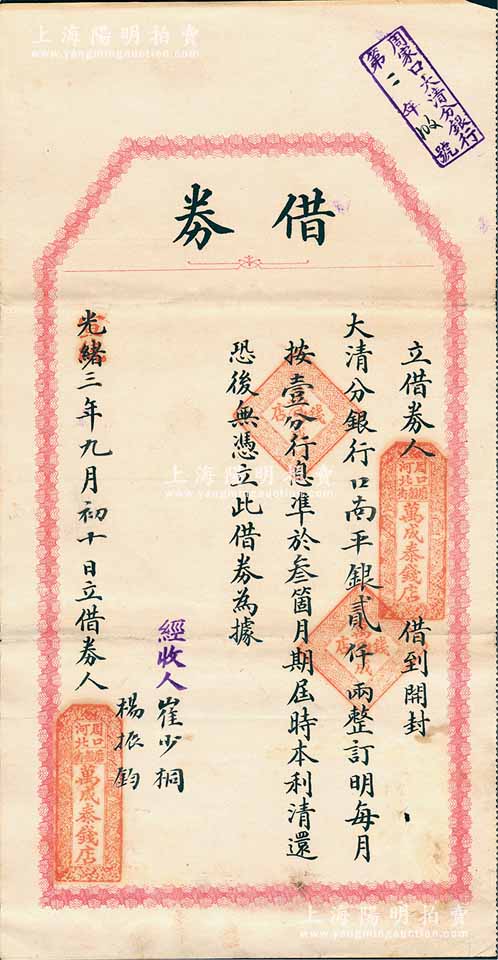 上海陽明拍賣
www.yangmingauction.com
周家口大清分銀行
第二年 號
借券
立借券人
周口
河北
萬成泰錢店
借到開封
大清分銀行口南平銀貳仟兩整訂明每月
按壹分行息準於叁箇月期屆時本利清還
恐後無憑立此借券為據
經收人
崔少桐
楊振鈞
光緒三年九月初十日立借券人
周口
河北
萬成泰錢店
上海陽明拍賣
www.yangmingauction.com
上海陽明拍賣
www.yangmingauction.com